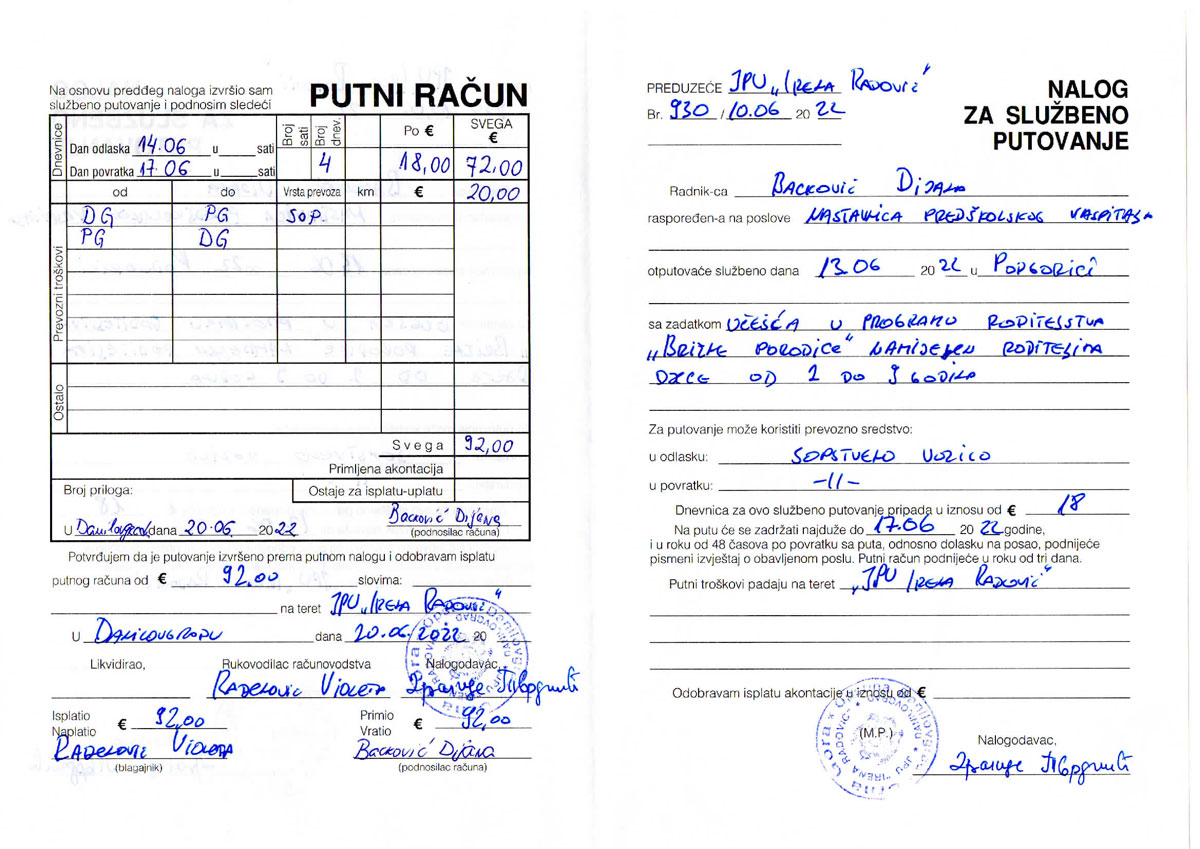 Na osnovu predđeg naloga izvršio sam
službeno putovanje i podnosim sledeći
PUTNI RAČUN
Dnevnice
Dan odlaska 14.06 u sati
Dan povratka 17.06 u sati
Broj sati
Broj dnev.
4
Po €
18,00
SVEGA €
72,00
od do Vrsta prevoza km € 20,00
Prevozni troškovi
DG PG Sop.
PG DG
Ostalo
Svega 92,00
Primljena akontacija
Broj priloga: Ostaje za isplatu-uplatu
U Danilovgrad dana 20.06. 2022 Backović Dijana
(podnosilac računa)
Potvrđujem da je putovanje izvršeno prema putnom nalogu i odobravam isplatu
putnog računa od € 92,00 slovima:
na teret JPU „Irena Radović“
U Danilovgradu dana 20.06.2022 20
Likvidirao, Rukovodilac računovodstva Nalogodavac,
Radelović Violeta
Isplatio
Naplatio € 92,00
Primio
Vratio € 92,00
Radelović Violeta Backović Dijana
(blagajnik) (podnosilac računa)
PREDUZEĆE JPU „Irena Radović“
Br. 930 / 10.06 20 22
NALOG
ZA SLUŽBENO
PUTOVANJE
Radnik-ca Backović Dijana
raspoređen-a na poslove NASTAVNICA PREDŠKOLSKOG VASPITANJA
otputovaće službeno dana 13.06 20 22 u Podgorici
sa zadatkom UČEŠĆA U PROGRAMU RODITELJSTVA
„BRIŽNE PORODICE“ NAMIJENJEN RODITELJIMA
DJECE OD 2 DO 9 GODINA
Za putovanje može koristiti prevozno sredstvo:
u odlasku: SOPSTVENO VOZILO
u povratku: -11-
Dnevnica za ovo službeno putovanje pripada u iznosu od € 18
Na putu će se zadržati najduže do 17.06 20 22 godine,
i u roku od 48 časova po povratku sa puta, odnosno dolasku na posao, podnijeće
pismeni izvještaj o obavljenom poslu. Putni račun podnijeće u roku od tri dana.
Putni troškovi padaju na teret „JPU Irena Radović“
Odobravam isplatu akontacije u iznosu od €
(M.P.)
Nalogodavac,